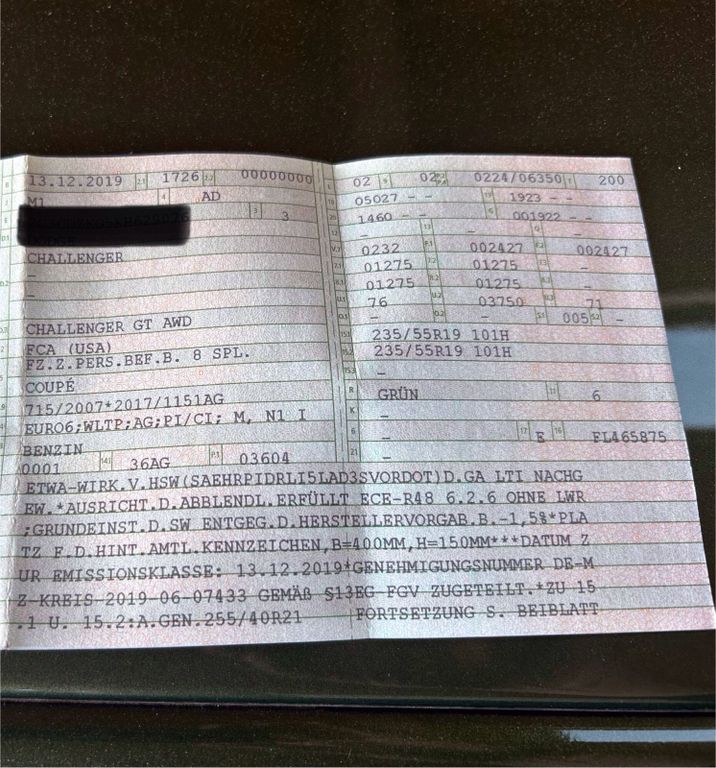 B 13.12.2019 2.1 1726 2.2 00000000
J M1 4 AD
E 3 3
D.1 DODGE
CHALLENGER
–
–
D.3 CHALLENGER GT AWD
2 FCA (USA)
5 FZ.Z.PERS.BEF.B. 8 SPL.
COUPÉ
715/2007*2017/1151AG
EURO6;WLTP;AG;PI/CI; M, N1 I
BENZIN
0001 14.1 36AG P.1 03604
L 02 9 02 P.2/P.4 0224/06350 T 200
18 05027 – – 19 1923 – –
20 1460 – – G 001922 – –
12 – 13 – Q –
V.7 0232 F.1 002427 F.2 002427
7.1 01275 7.2 01275 7.3 –
8.1 01275 8.2 01275 8.3 –
U.1 76 U.2 03750 U.3 71
O.1 – O.2 – S.1 005 S.2 –
15.1 235/55R19 101H
15.2 235/55R19 101H
15.3 –
R GRÜN 11 6
K –
6 – 17 E 16 FL465875
21 –
ETWA-WIRK.V.HSW(SAEHRPIDRLI5LAD3SVORDOT)D.GA LTI NACHG
EW.*AUSRICHT.D.ABBLENDL.ERFÜLLT ECE-R48 6.2.6 OHNE LWR
;GRUNDEINST.D.SW ENTGEG.D.HERSTELLERVORGAB.B.-1,5%*PLA
TZ F.D.HINT.AMTL.KENNZEICHEN,B=400MM,H=150MM***DATUM Z
UR EMISSIONSKLASSE: 13.12.2019*GENEHMIGUNGSNUMMER DE-M
Z-KREIS-2019 06-07433 GEMÄß S13EG-FGV ZUGETEILT.*ZU 15
.1 U. 15.2:A.GEN.255/40R21 FORTSETZUNG S. BEIBLATT